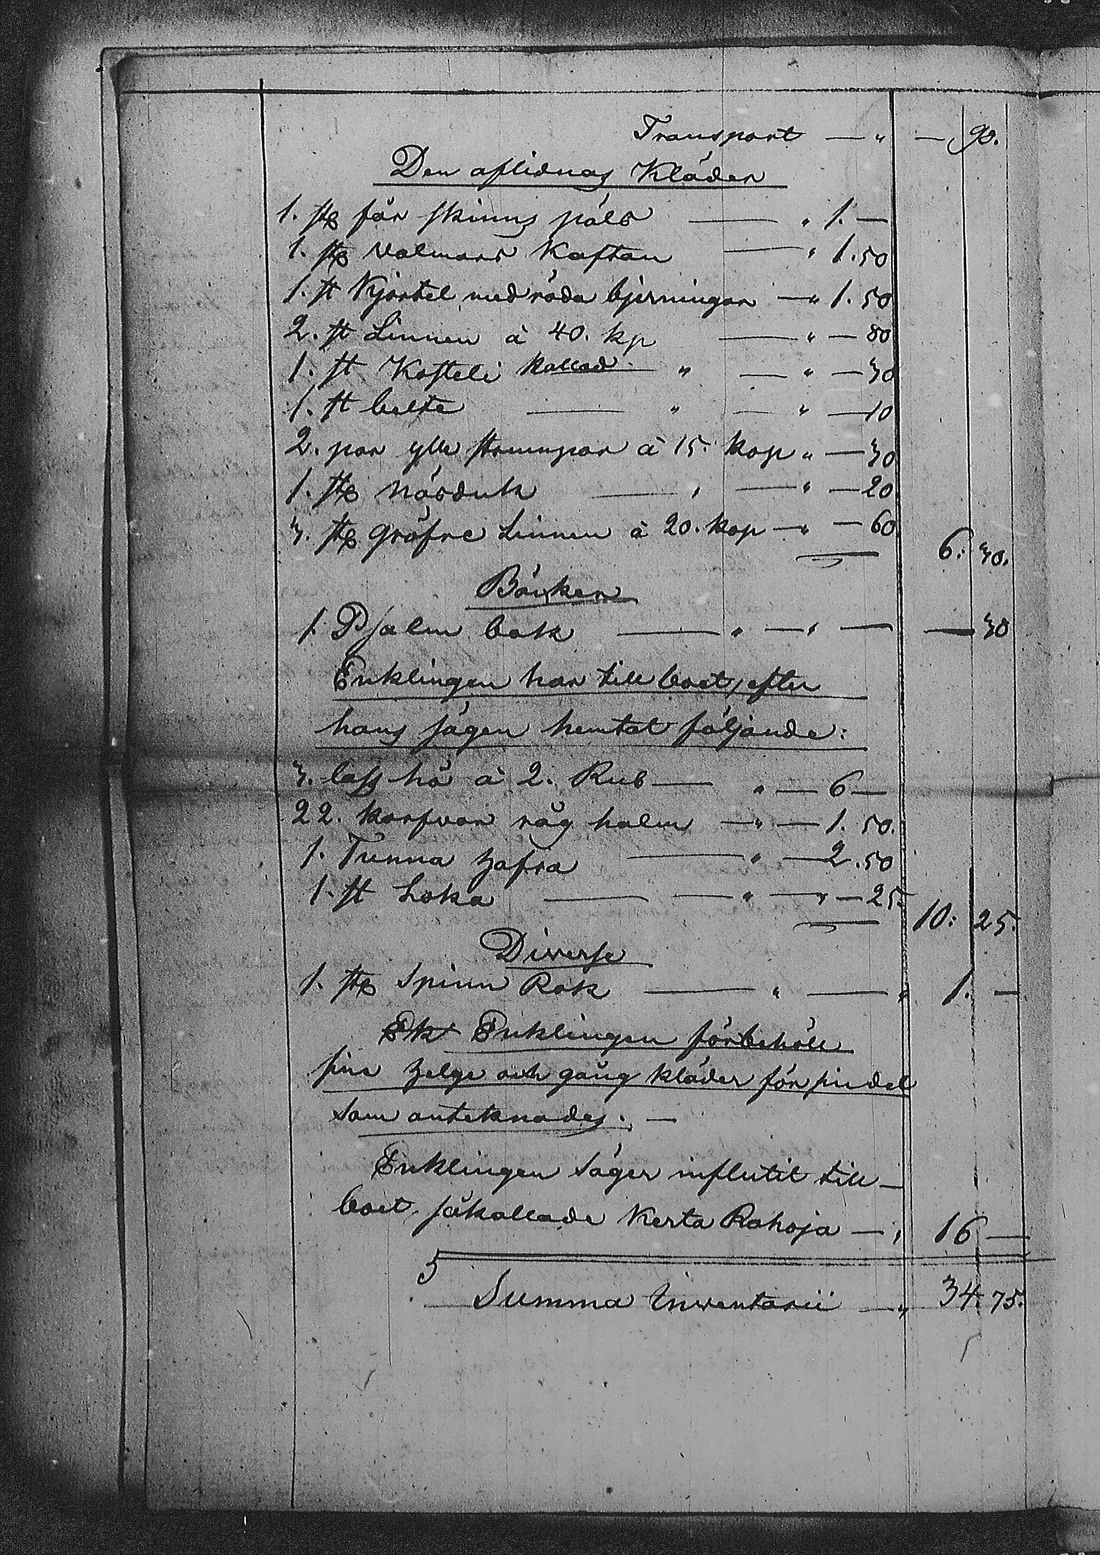 Transport — „ — 90.
Den aflidnas Kläder
1. st får skinns päls — „ 1. —
1. st Valmars Kaftan — „ 1. 50
1. st Kjortel med röda bjerningar — „ 1. 50
2. st Linnen à 40. kp — „ — 80
1. st Kosteli kallad „ — „ — 30
1. st belte — „ — „ — 10
2. par ylle strumpor à 15. kop „ — 30
1. st näsduk — „ — „ — 20
3. st gröfre Linnen à 20. kop — „ — 60 6. 30.
Böcker
1. Psalm bok — „ — „ — — 30
Enklingen har till boet, efter
hans sägen hemtat följande:
3. lass hö à 2. Rub — „ — 6 —
22. karfvar råg halm — „ — 1. 50.
1. Tunna hafra — „ — 2. 50
1. st Loka — — „ — „ — 25. 10: 25.
Diverse
1. st Spinn Rok — „ — „ 1. —
Ek Enklingen förbehöll
sina helge och gång kläder för sin del
som anteknades. —
Enklingen säger influtit till
boet, såkallade Kerta Rahoja — „ 16 —
Summa Inventarii — „ 34. 75.